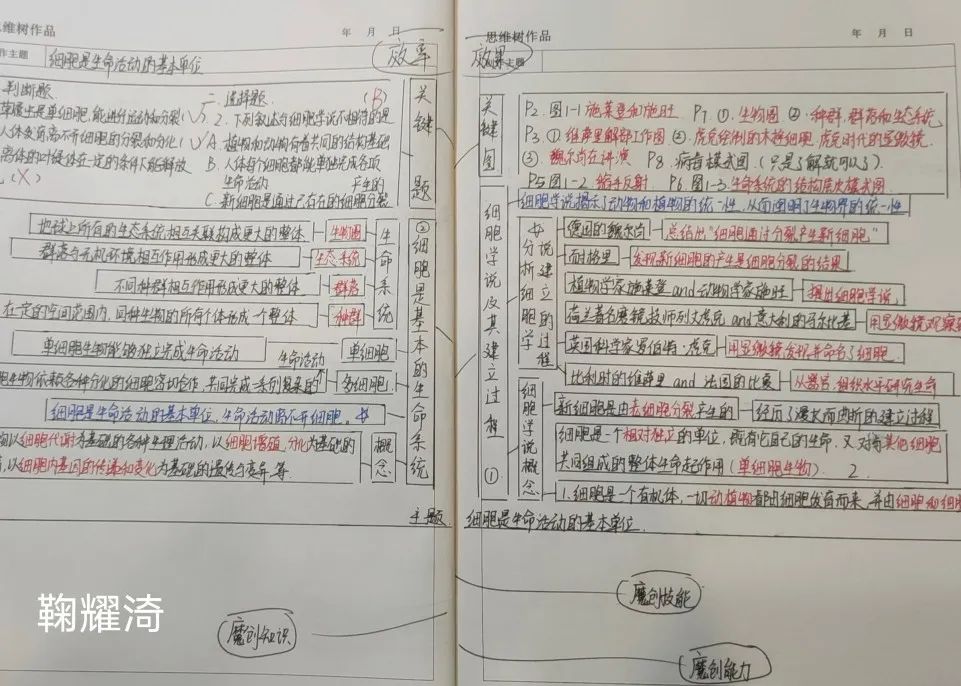 思维树作品 年 月 日
作主题 细胞是生命活动的基本单位 效率
判断题
草履虫是单细胞,能进行运动和分裂 √
人体发育离不开细胞的分裂和分化 √
离体的叶绿体在一定的条件下能释放
(X)
二.选择题 (B)
2.下列叙述与细胞学说不相符的是
A.植物和动物有着共同的结构基础
B.人体每个细胞都能单独完成各项
生命活动 产生的
C.新细胞是通过已存在的细胞分裂
关键题
地球上所有的生态系统相互关联构成更大的整体 生物圈
群落与无机环境相互作用形成更大的整体 生态系统
不同种群相互作用形成更大的整体 群落
在一定的空间范围内,同种生物的所有个体形成一个整体 种群
生命系统
单细胞生物能够独立完成生命活动 生命活动 单细胞
胞生物依赖各种分化的细胞密切合作,共同完成一系列复杂的 多细胞
细胞是生命活动的基本单位,生命活动离不开细胞。
物以细胞代谢为基础的各种生理活动,以细胞增殖,分化为基础的
,以细胞内基因的传递和变化为基础的遗传与变异等.
概念
②细胞是基本的生命系统
主题 细胞是生命活动的基本单位
鞠耀渏
魔创知识
思维树作品 年 月 日
效果 主题
关键图
P2.图1-1施莱登和施旺 P7.①.生物圈 ②.种群,群落和生态系统
P3.①维萨里解剖工作图 ②.虎克绘制的木栓细胞,虎克时代的显微镜
③.魏尔肖在讲演 P8.病毒模式图(只是了解就可以了)
P5图1-2.缩手反射. P6.图1-3.生命系统的结构层次模式图.
细胞学说揭示了动物和植物的统一性,从而阐明了生物界的统一性
细胞学说及其建立过程 ①
分析细胞学说建立的过程
德国的魏尔肖 总结出“细胞通过分裂产生新细胞”
耐格里 发现新细胞的产生是细胞分裂的结果
植物学家施莱登and动物学家施旺 提出细胞学说
荷兰著名磨镜技师列文虎克and意大利的马尔比基 用显微镜观察
英国科学家罗伯特·虎克 用显微镜发现并命名了细胞.
比利时的维萨里and法国的比夏 从器官,组织水平研究生命
细胞学说概念
新细胞是由老细胞分裂产生的 经历了漫长而曲折的建立过程
细胞是一个相对独立的单位,既有它自己的生命,又对与其他细胞
共同组成的整体生命起作用(单细胞生物). 2
1.细胞是一个有机体,一切动植物都由细胞发育而来,并由细胞和细胞
魔创技能
魔创能力